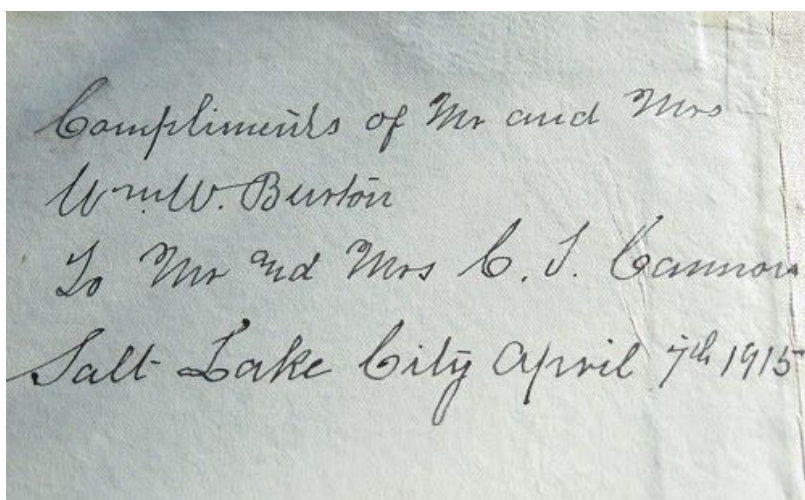 Compliments of Mr and Mrs
Wm W. Burton
To Mr and Mrs C. J. Cannon
Salt Lake City April 7th 1915